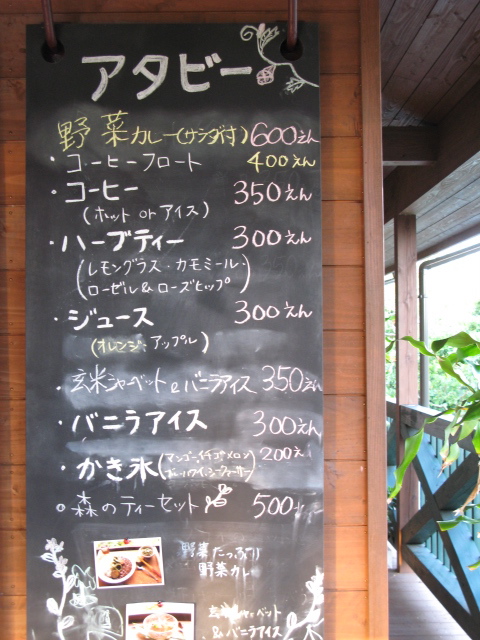 アタビー
野菜カレー(サラダ付)600えん
・コーヒーフロート 400えん
・コーヒー 350えん
(ホット or アイス)
・ハーブティー 300えん
(レモングラス・カモミール・
ローゼル&ローズヒップ)
・ジュース 300えん
(オレンジ、アップル)
・玄米シャーベット&バニラアイス 350えん
・バニラアイス 300えん
・かき氷(マンゴー、イチゴ、メロン 200え
ブルーハワイ、シークヮーサー)
○森のティーセット 500
野菜たっぷり
野菜カレー
玄米シャーベット
&バニラアイス